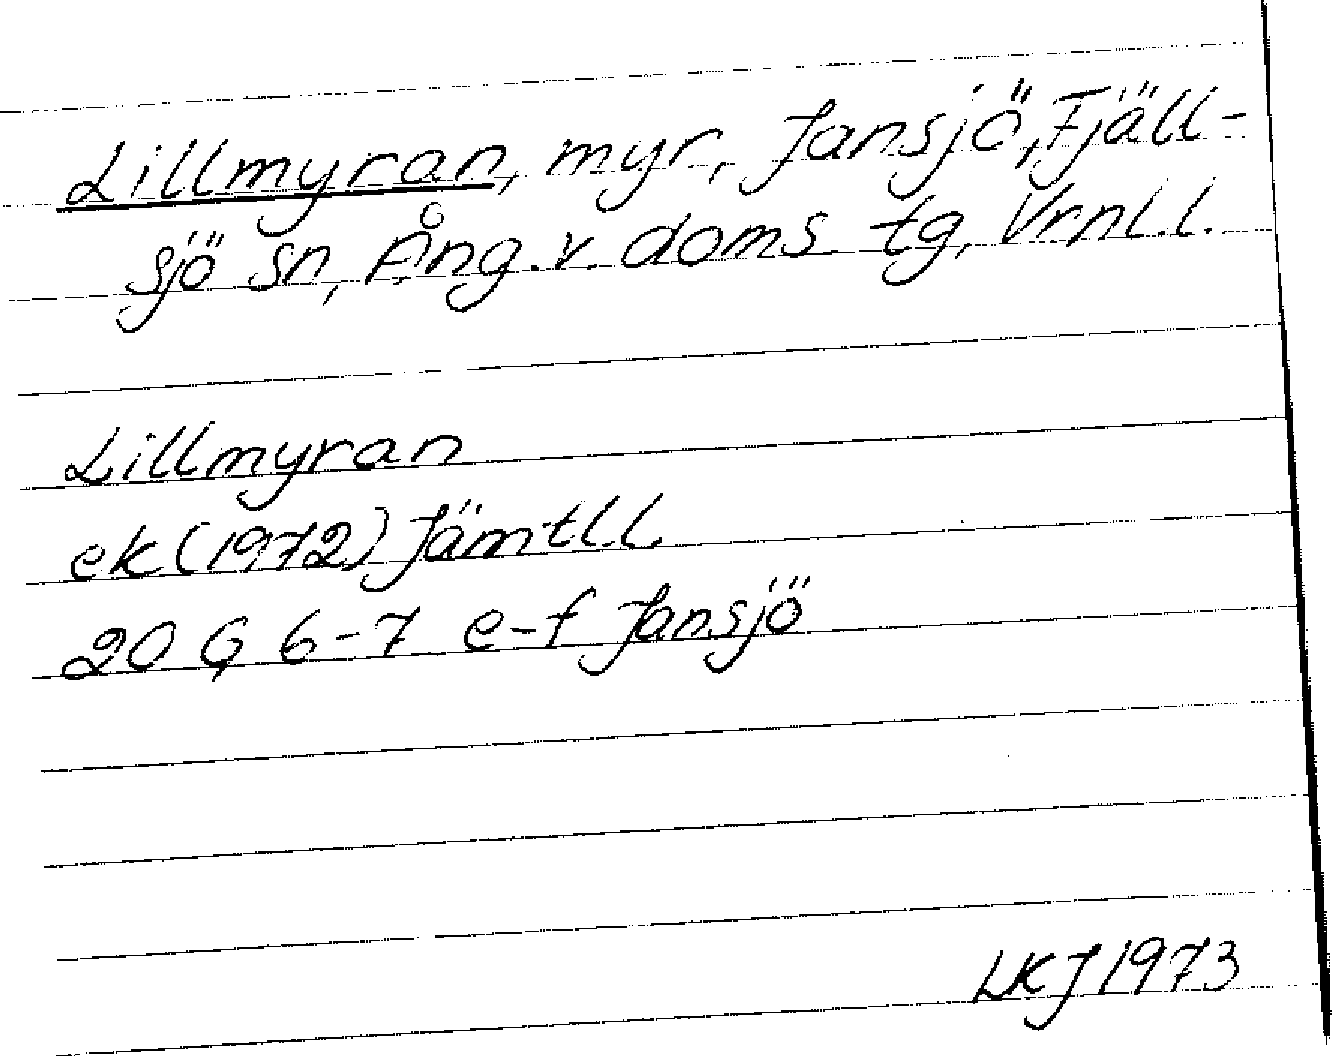 Lillmyran, myr, Jansjö, Fjäll-
sjö sn, Ång. v. doms tg, Vrnl. l.
Lillmyran
ek (1972) Jämtl.l.
20 G 6-7 e-f Jansjö
LKJ 1973